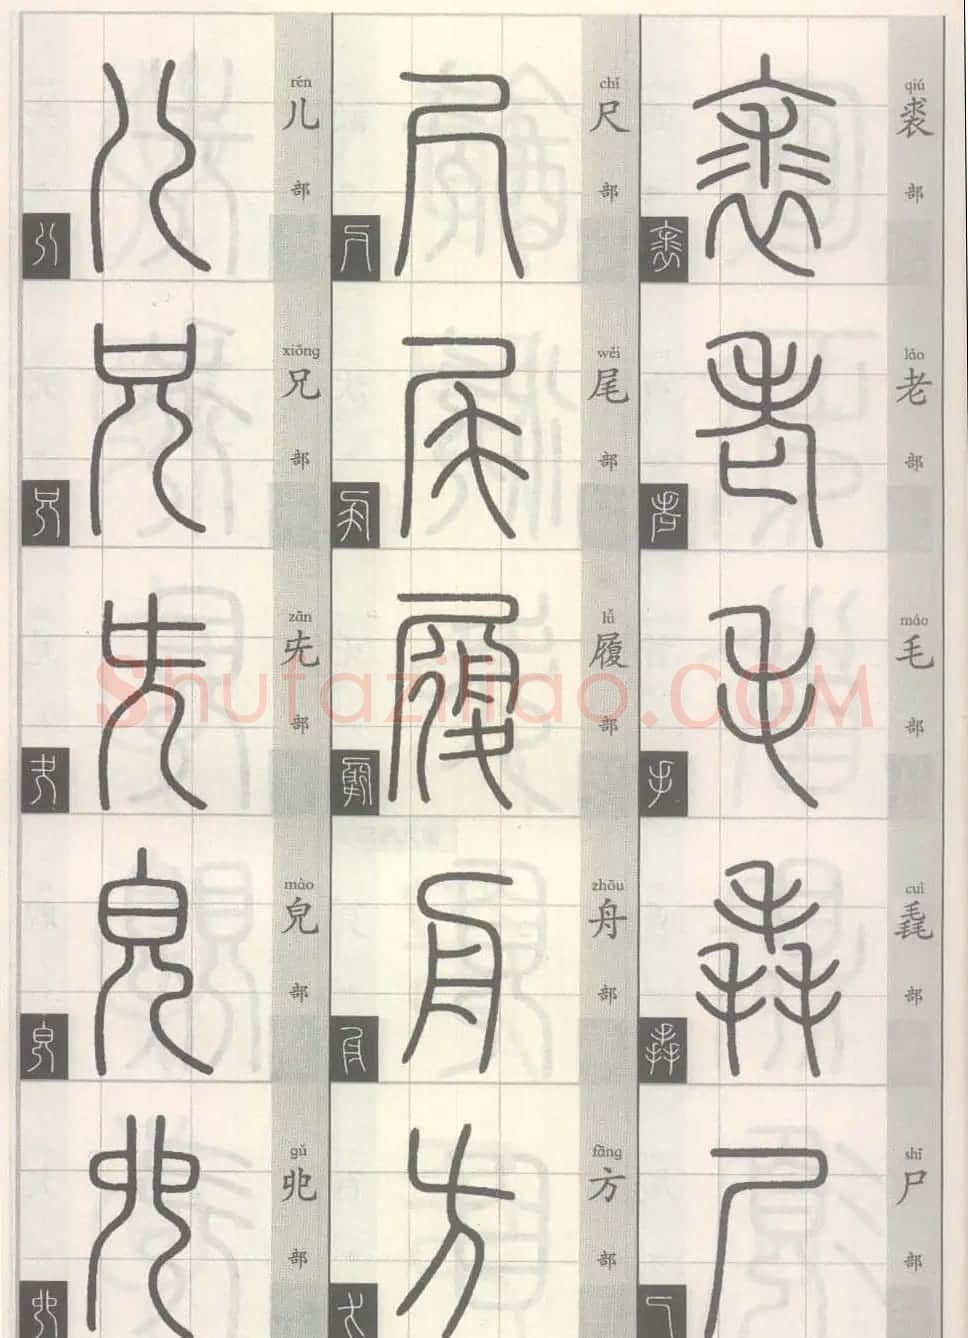 qiú
裘
部
lǎo
老
部
máo
毛
部
cuì
毳
部
shī
尸
部
chǐ
尺
部
wěi
尾
部
lǚ
履
部
zhōu
舟
部
fāng
方
部
rén
儿
部
xiōng
兄
部
zān
兂
部
mào
皃
部
gǔ
𠑹
部
Shufaziliao.COM